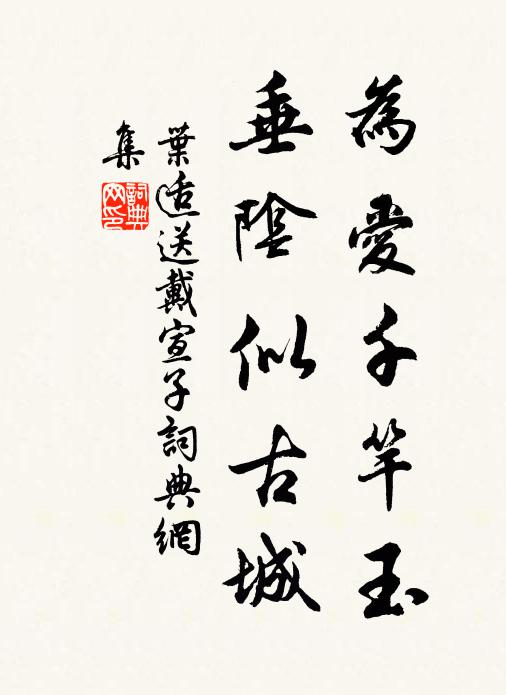 為愛千竿玉
垂陰似古城
葉適送戴宣子詞典網
集
詞典
网印